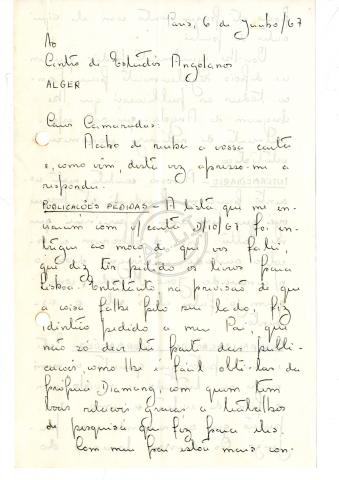 Paris, 6 de Junho/67
Ao
Centro de Estudos Angolanos
ALGER
Caros Camaradas:
Acabo de receber a vossa carta
e, como vêm, desta vez apresso-me a
responder.
PUBLICAÇÕES PEDIDAS - A lista que me en-
viaram com v/ carta /10/67 foi en-
tregue ao moço de que vos falei,
que diz ter pedido os livros para
Lisboa. Entretanto na previsão de que
a coisa falhe pelo seu lado, fiz
idêntico pedido a meu Pai, que
não só deve ter parte das publi-
cações, como lhe é fácil obtê-las da
própria Diamang, com quem tem
boas relações graças a trabalhos
de pesquisa que fez para eles.
Com meu pai estou mais con-